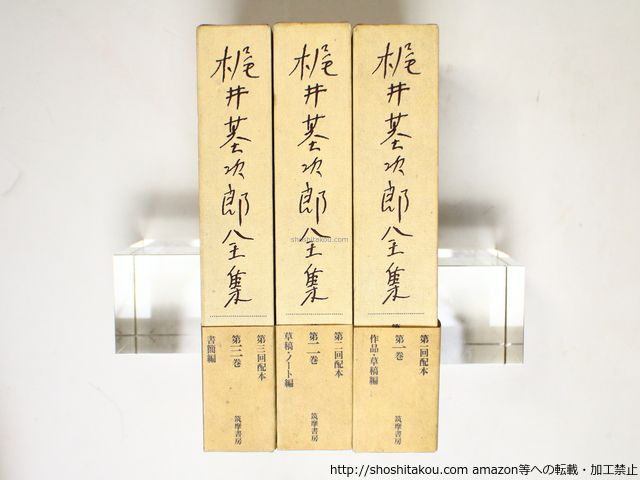 梶井基次郎全集
第一回配本
第一巻
作品・草稿編
筑摩書房
梶井基次郎全集
第二回配本
第二巻
草稿・ノート編
筑摩書房
梶井基次郎全集
第三回配本
第三巻
書簡編
筑摩書房
shoshitakou.com
http://shoshitakou.com amazon等への転載・加工禁止